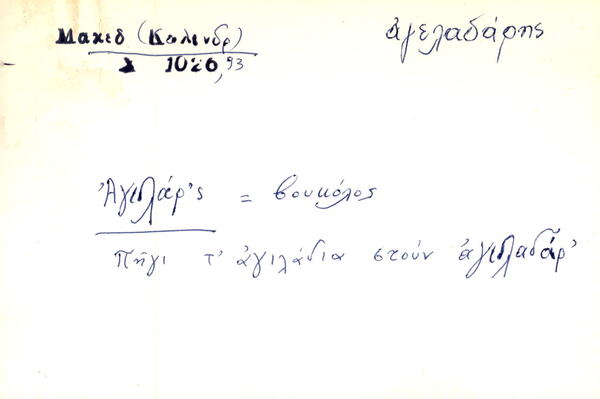 Μακεδ (Κολινδρ)
χ 1026,93
ἀγελαδάρης
Ἀγιλάρ'ς = βουκόλος
Πῆγι τ' ἀγιλάδια στοὺν ἀγιλαδάρ'